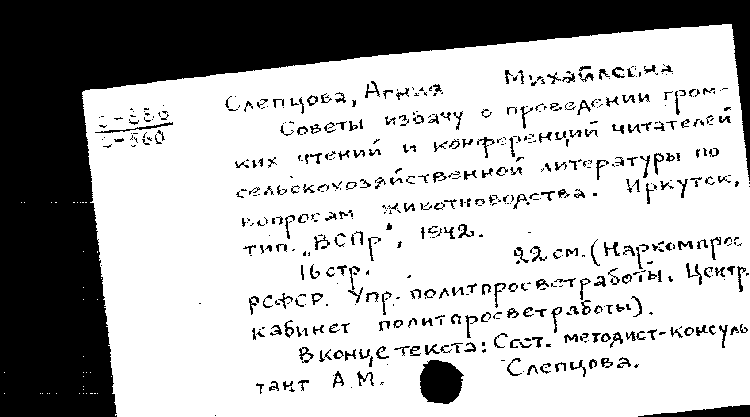 Слепцова, Агния Михайловна
Советы избачу о проведении гром-
ких чтений и конференций читателей
сельскохозяйственной литературы по
вопросам животноводства. Иркутск,
тип. „ВСПр", 1942.
16 стр. 22 см. (Наркомпрос
РСФСР. Упр. политпросветработы. Центр.
кабинет политпросветработы).
В конце текста: Сост. методист-консуль
тант А.М. Слепцова.